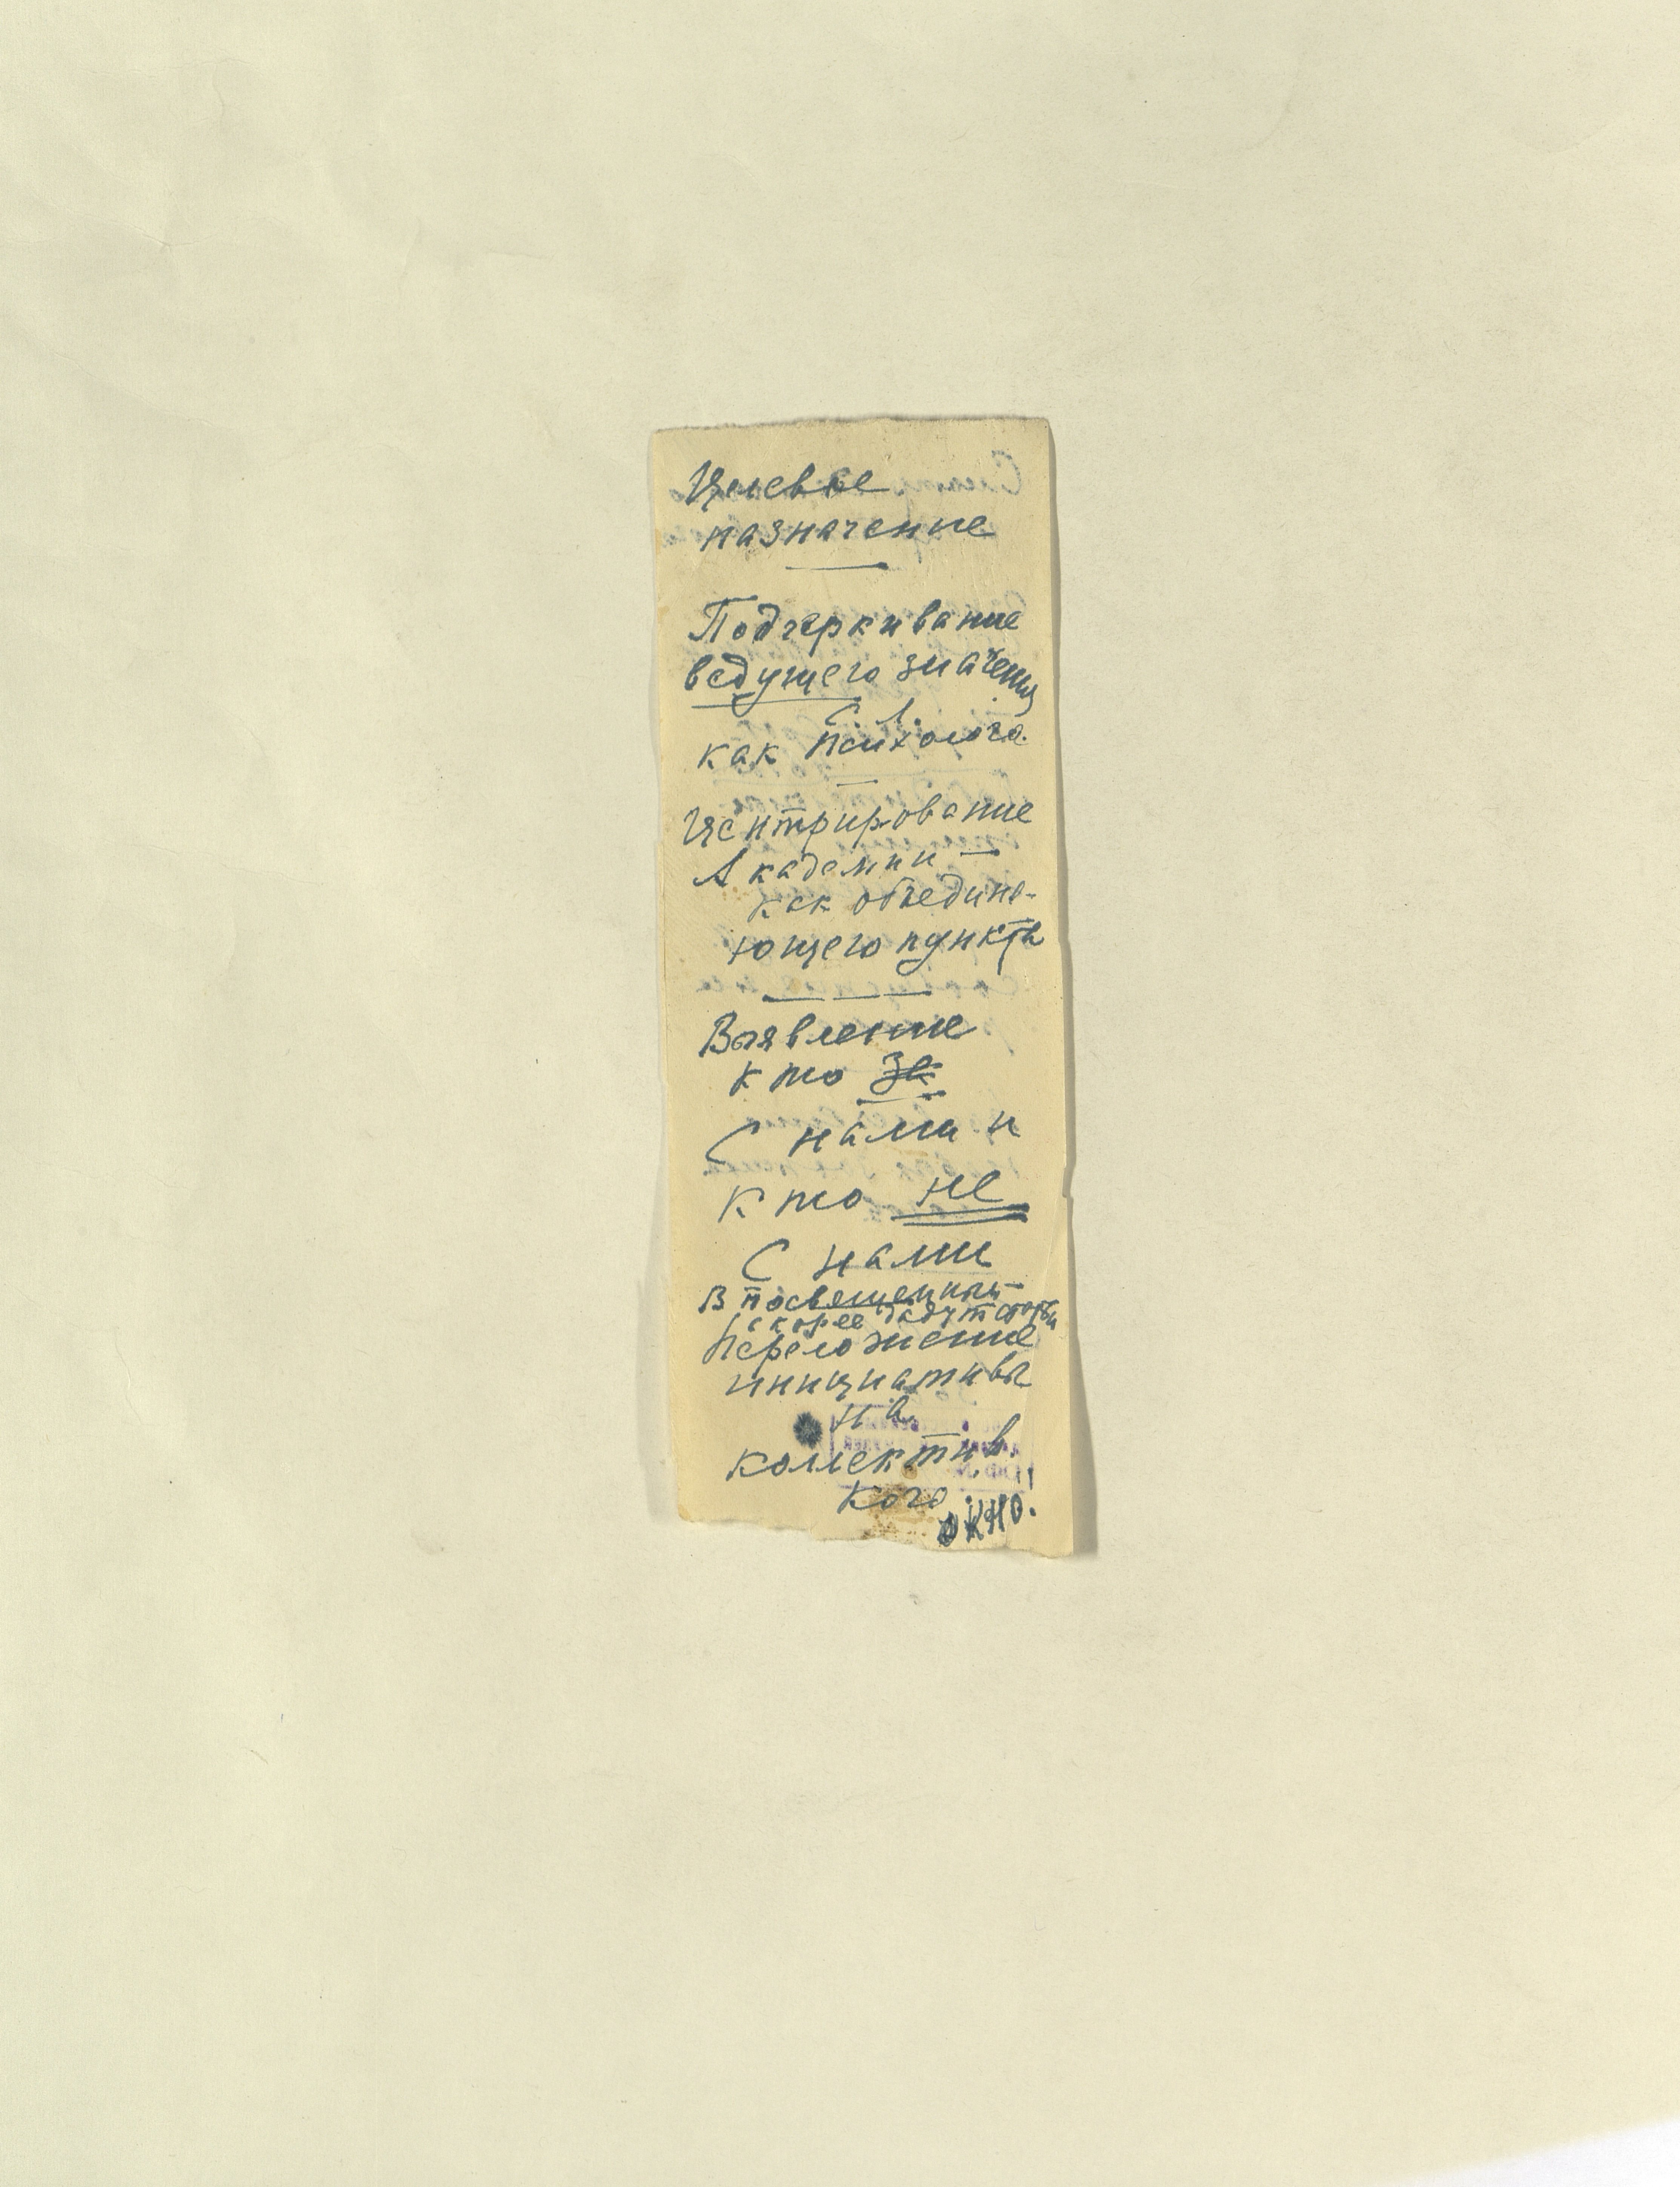 Целевое
назначение
Подчеркивание
ведущего значения
С. Л.
как психолога
Центрирование
Академии —
как объединя-
ющего пункта
Выявление
кто за
с нами и
кто не
с нами
В посвещении
скорее дадут
Переложение
инициативы
на
коллектив.
кого
окно!